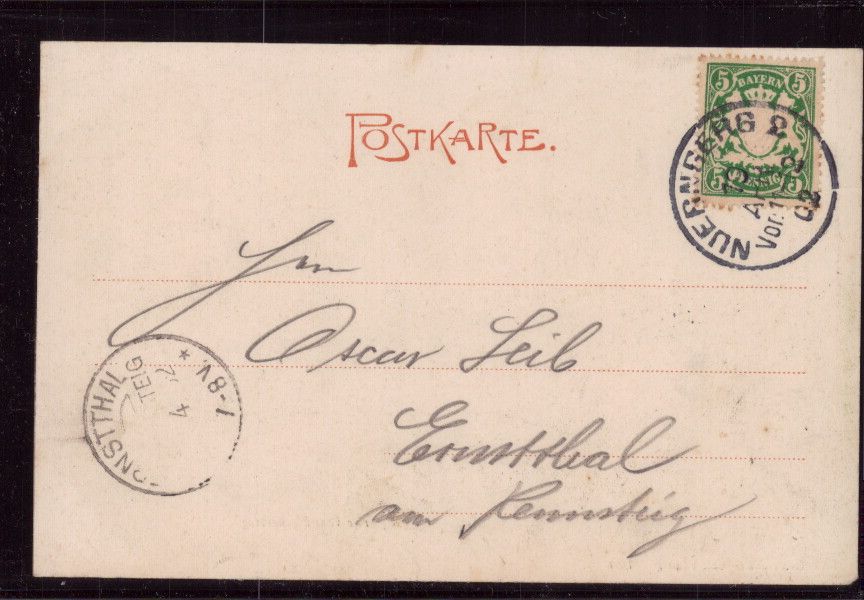 POSTKARTE.
5 BAYERN 5
5 PFENNIG 5
NUERNBERG 2
Vor
Hrn
Oscar Leib
Ernstthal
am Rennsteig
ERNSTTHAL
STEIG
4
7-8V. *